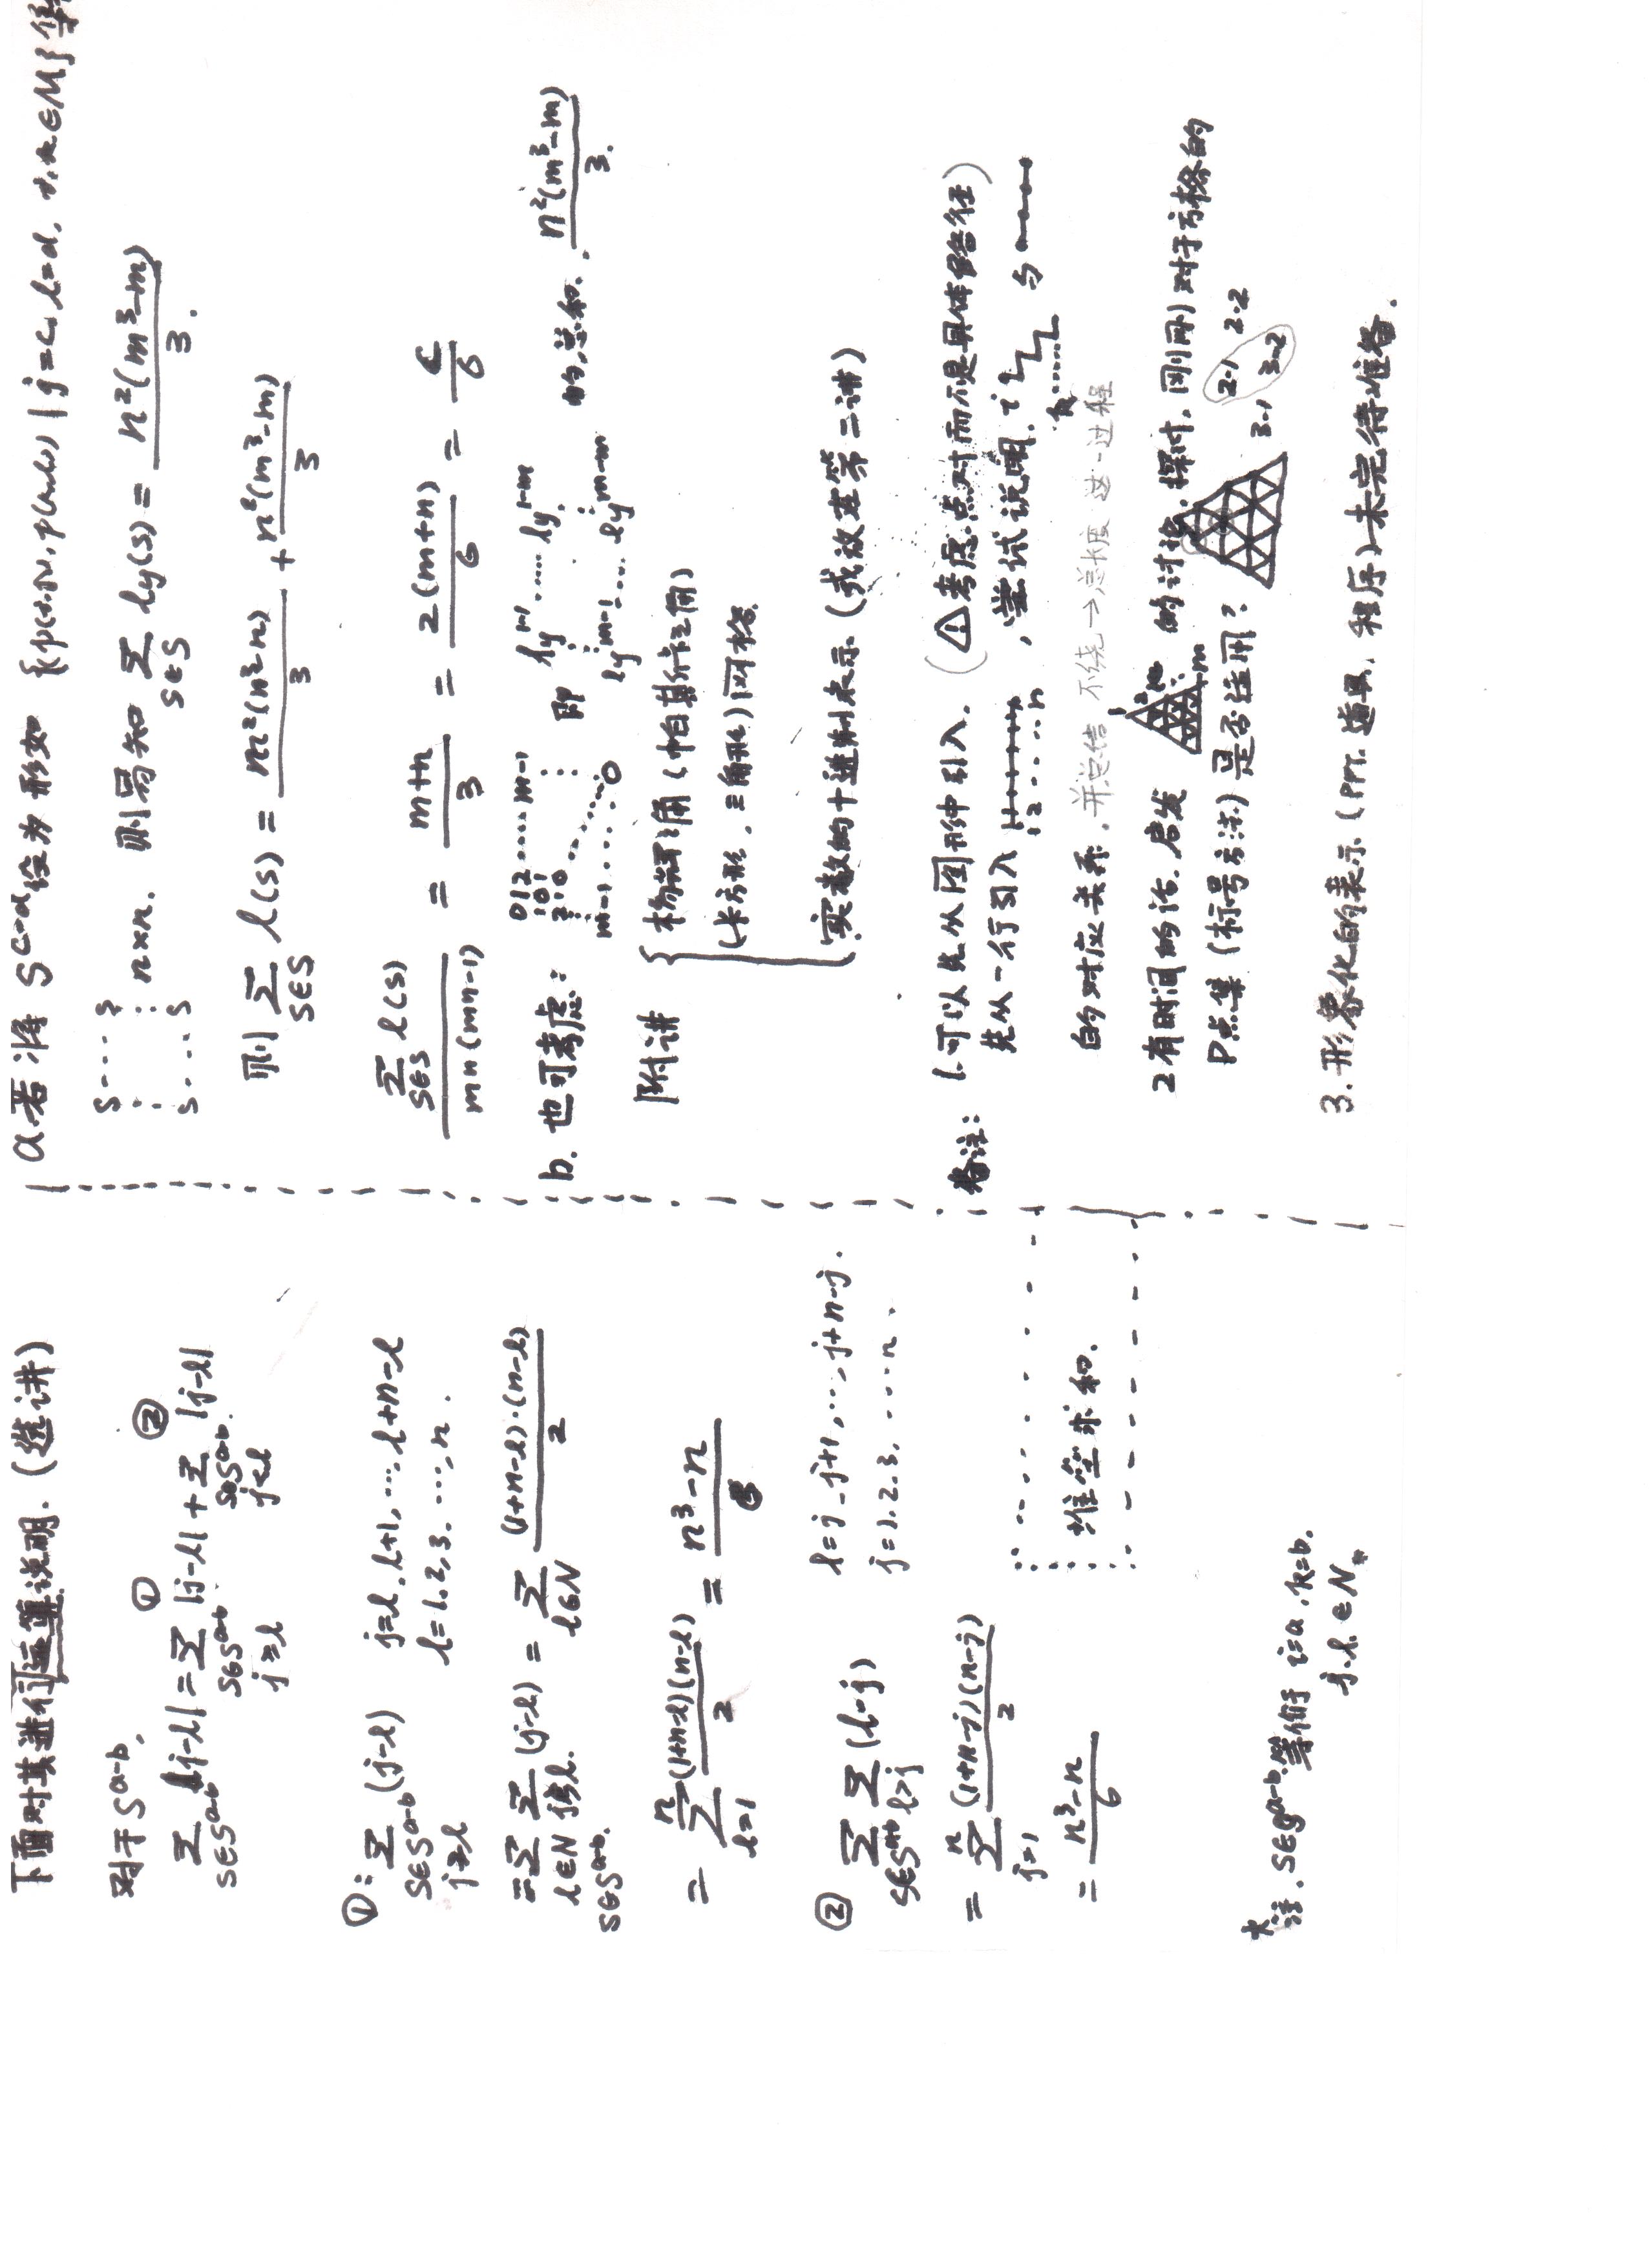 下面对其进行运算说明.(选讲)
对于 S^{a-b},
① ②
∑_{S∈S^{a-b}} |j-l| = ∑_{S∈S^{a-b}, j≥l} |j-l| + ∑_{S∈S^{a-b}, j<l} |j-l|
①: ∑_{S∈S^{a-b}, j≥l} (j-l) j=l, l+1, …, l+n-l
l=1,2,3,…,n.
= ∑_{l∈N, S∈S^{a-b}} ∑_{j≥l} (j-l) = ∑_{l∈N} (1+n-l)·(n-l)/2
= ∑_{l=1}^{n} (1+n-l)(n-l)/2 = (n³-n)/6
② ∑_{S∈S^{a-b}} ∑_{l>j} (l-j) l=j, j+1, …, j+n-j.
j=1.2.3. ….n.
= ∑_{j=1}^{n} (1+n-j)(n-j)/2
= (n³-n)/6
堆垒求和.
*注. S∈S^{a-b} 等价于 i=a, k=b.
j.l. ∈N.
a.若将 S^{c-d} 设为形如 {(p(i,j), p(k,l)) | j=c, l=d, i,k∈M}
S---S
S...S n×n. 则易知 ∑_{S∈S} ly(s) = n²(m³-m)/3.
则 ∑_{S∈S} l(s) = m²(n³-n)/3 + n²(m³-m)/3
∑_{S∈S} l(s) / mn(mn-1) = (m+n)/3 = 2(m+n)/6 = C/6
b. 也可考虑: 即 的总和. n²(m³-m)/3.
012 .... m-1
101
210
m-1 .... 0
ly^{1-1} ..... ly^{1-m}
ly^{m-1} ... ly^{m-m}
附讲 { 杨辉三角(帕斯卡三角)
(长方形, 三角形)网格.
实数的十进制表示(或放在第二讲)
备注: 1.可以先从图形中引入. (⚠考虑点对而不是具体路径)
先从一行引入 1 2 .... n ,尝试说明. i k 与
的对应关系. 并总结 不绕→总长度 这一过程
2.有时间的话. 启发 1 2 m 的讨论, 探讨, 刚刚对于方格的
P点集(标号方法)是否适用? 2.1 2.2
3.1 3.2
3.形象化的表示(PPT. 道具. 程序)未完待准备.